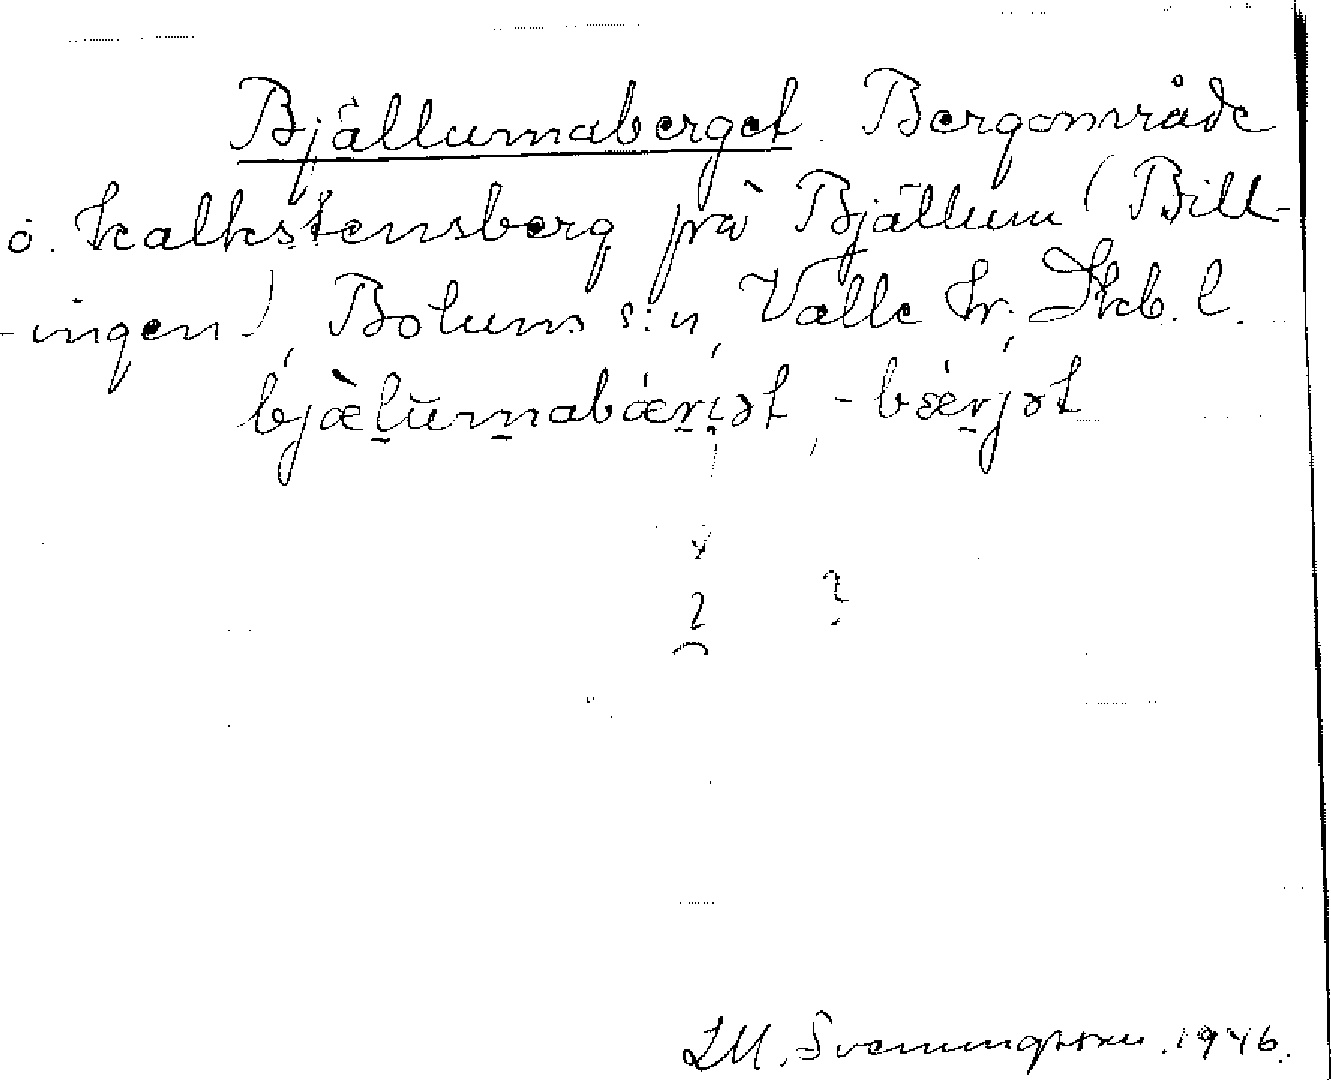 Bjällumaberget Bergområde
o. kalkstensberg på Bjällum (Bill-
-ingen) Bolums s:n, Valle hr. Skb. l.
bjæ̀lu̅mabǽrjət, -bǽrjət
?
?
LM. Svenungsson. 1946.